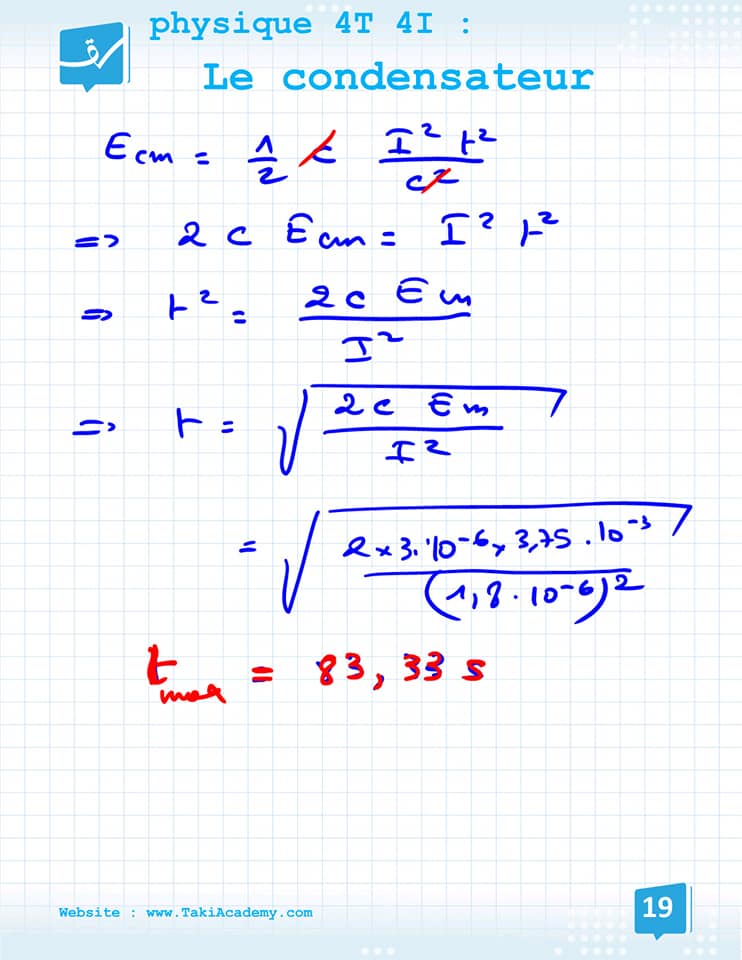 physique 4T 4I :
Le condensateur
E cm = 1/2 C I² t² / C²
=> 2 C E cm = I² t²
=> t² = 2 C E m / I²
=> t = √(2 C E m / I²)
= √(2 × 3.10⁻⁶ × 3,75 . 10⁻³ / (1,8 . 10⁻⁶)²)
t max = 83,33 s
Website : www.TakiAcademy.com
19